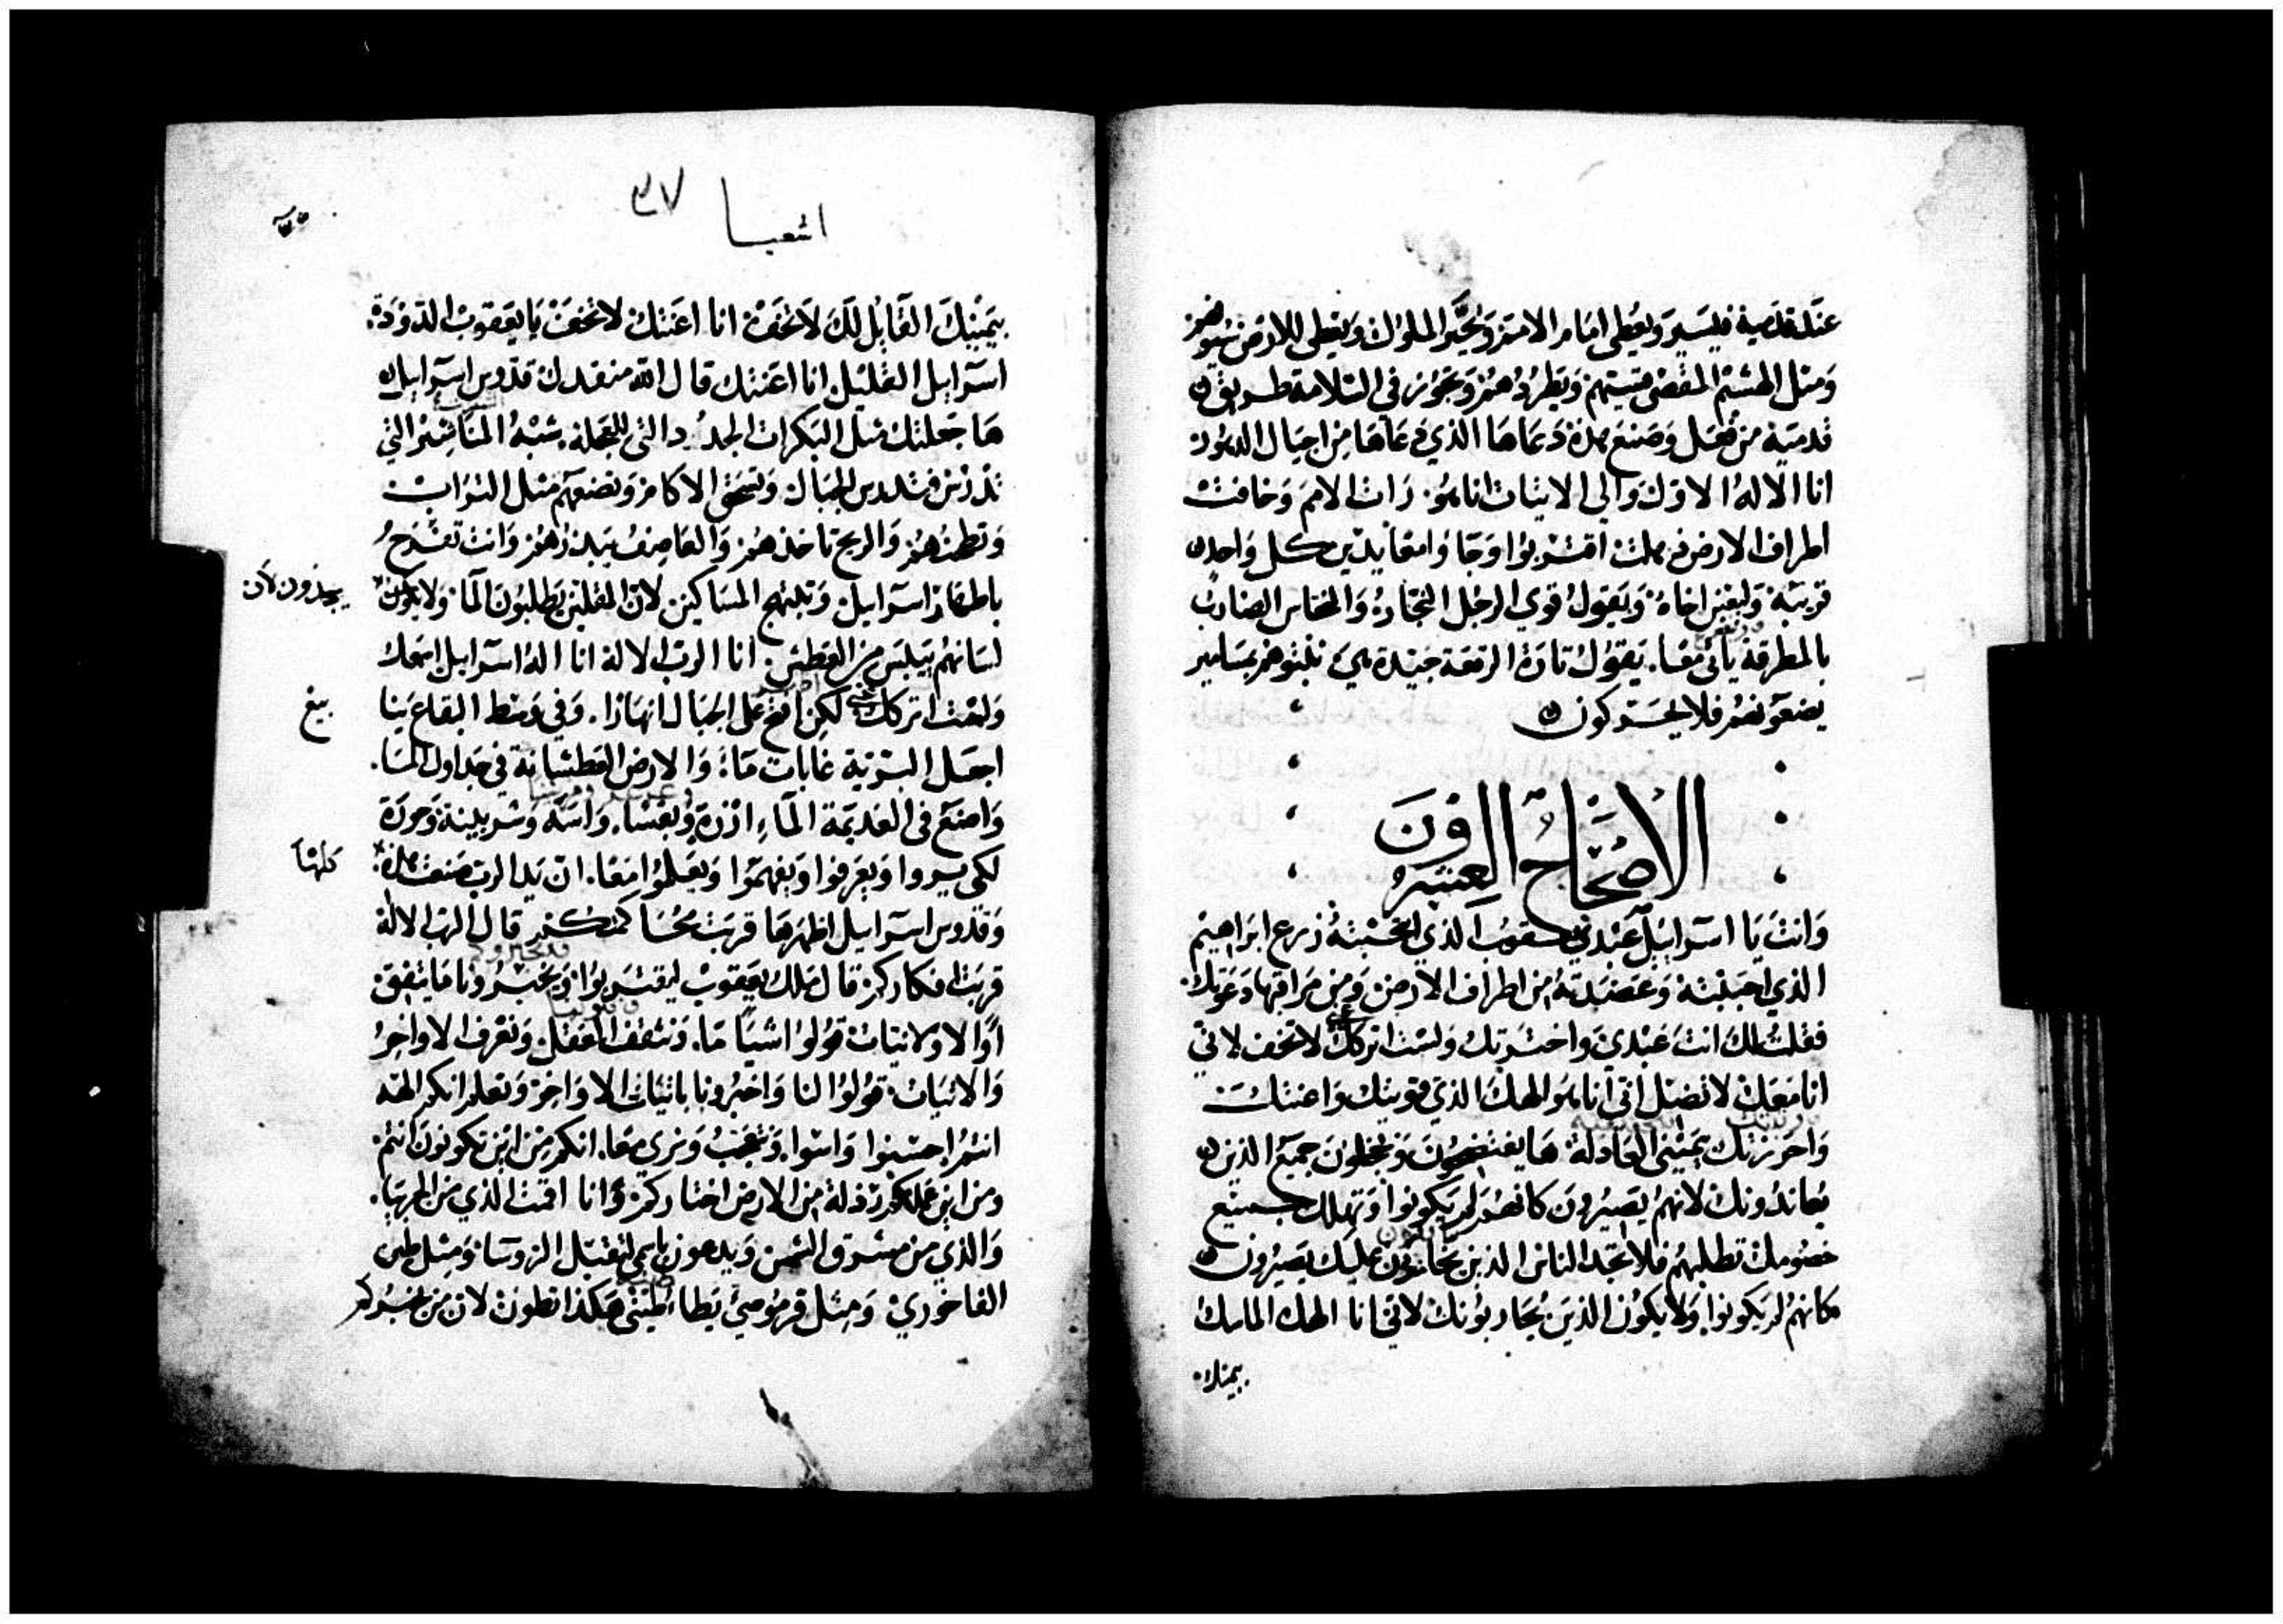 عند قدميه فيسير ويعطى امام الامم ويحير الملوك ويعطى للارض سيوفهم
ومثل الهشيم المقصى قسيهم ويطردهم ويجوز في السلامة طريق
قدميه من فعل وصنع هذه دعاها الذي دعاها من اجيال الدهور
انا الاله الاول والى الاتيات انا هو. رات الامم وخافت
اطراف الارض ذهلت اقتربوا وجاوا معا يدين كل واحد
قريبه وليغين اخاه ويقول قوي الرجل النجار والنحاس الضارب
بالمطرقة ياتي معا. يقول تارة الرقعة جيدة هي ثبتوهم بمسامير
يضعونهم فلا يتحركون
الاصحاح العشرون
وانت يا اسرائيل عبدي يعقوب الذي انتخبته زرع ابراهيم
الذي احببته وعضدته من اطراف الارض ومن مراقبها دعوتك
فقلت لك انت عبدي واخترتك ولست اتركك لا تخف لاني
انا معك لا تضل اني انا هو الهك الذي قويتك واعنتك
واحرزتك بيميني العادلة ها يفتضحون ويخجلون جميع الذين
يعاندونك لانهم يصيرون كانهم لم يكونوا وتهلك جميع
خصومك تطلبهم فلا تجد الناس الذين يحاربون عليك يصيرون
كانهم لم يكونوا ولا يكون الذين يحاربونك لاني انا الهك الماسك
بيمينك
اشعيا ٣٧
بيمينك القايل لك لا تخف انا اعنتك لا تخف يا يعقوب الدودة
اسرائيل القليل انا اعنتك قال الله منقذك قدوس اسرائيل
ها جعلتك مثل البكرات الجدد التي للعجلة شبه المناشير التي
تدرس فتدرس الجبال وتسحق الاكام وتضعهم مثل التراب
وتطحنهم والريح تاخذهم والعاصف يبذرهم وانت تفرح
باطهار اسرائيل وتبتهج المساكين لان المقلين يطلبون الما ولا يكون
يجدون لان
لسانهم يبس من العطش. انا الرب الاله انا اله اسرائيل اسمعك
ولست اتركك لكن افتح على الجبال انهارا. وفي وسط البقاع ينا
بيع
اجعل البرية غابات ماء والارض العطشانة في جداول الما.
واصنع في العديمة الماء ارزة وبقسا. واسة وشربينة وحورة
لكي يروا ويعرفوا ويفهموا ويعلموا معا. ان يد الرب صنعت هذه
كلها
وقدوس اسرائيل اظهرها قربت محاكمتكم قال الرب الاله
قربت افكاركم قال ملك يعقوب ليقتربوا ويخبرونا ما يتفق
او الاولانيات قولوا اشيا ما. ونثقف العقل ونعرف الاواخر
والاتيات قولوا لنا واخبرونا باتيات الاواخر ونعلم انكم الهة
انتم احسنوا واسوا. ونتعجب ونرى معا. انكم من اين تكونون انتم
ومن اين عملكم رذلة من الارض اختاركم وانا اقمت الذي من الجربيا.
والذي من مشرق الشمس ويدعون باسمي لتقبل الروسا ومثل طين
الفاخوري ومثل قرموصي يطا طيني هكذا تطون لان من يخبركم